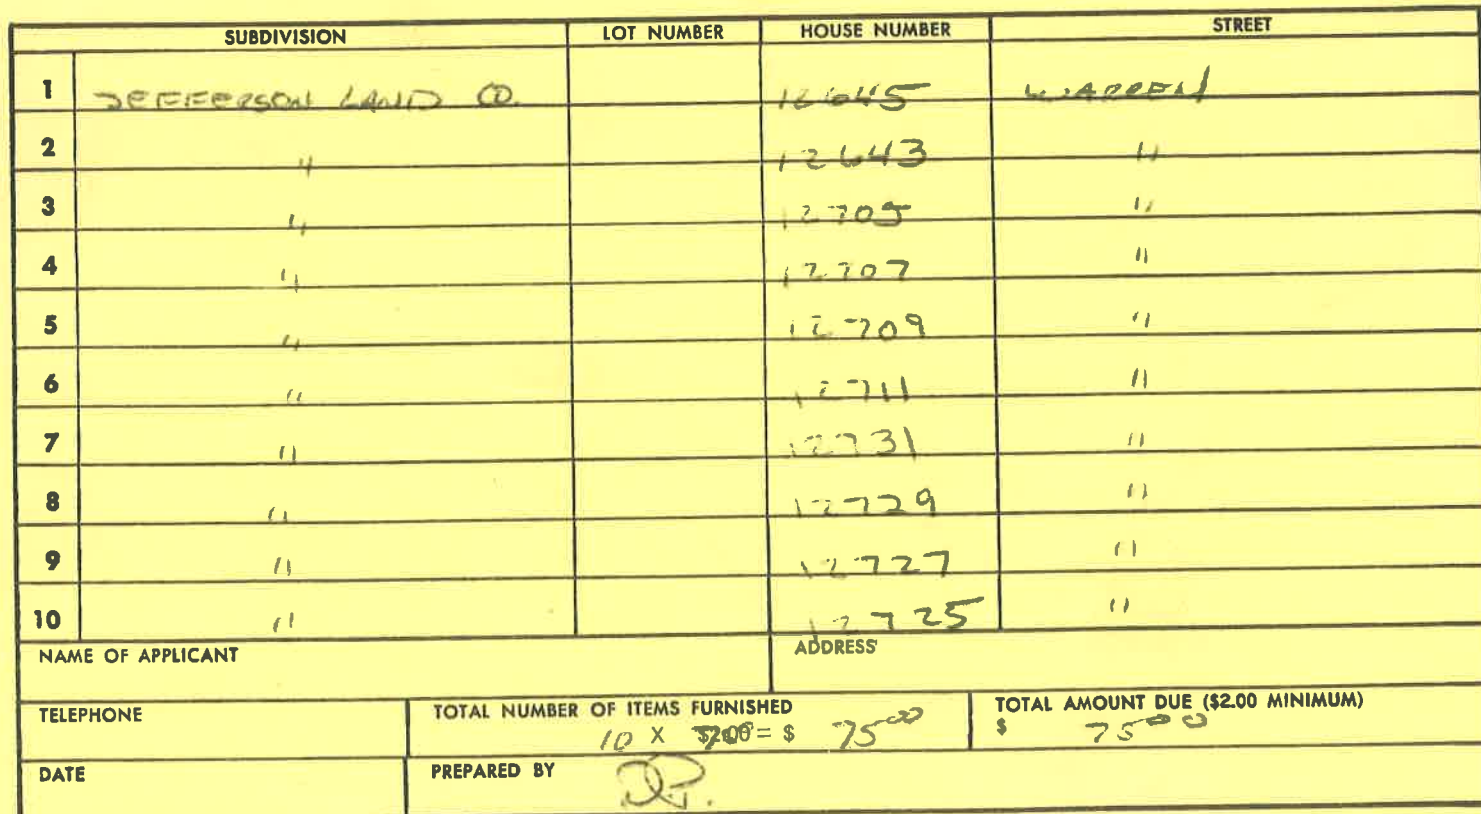 SUBDIVISION LOT NUMBER HOUSE NUMBER STREET
1 JEFFERSON LAND CO. 12645 WARREN
2 " 12643 "
3 " 12705 "
4 " 12707 "
5 " 12709 "
6 " 12711 "
7 " 12731 "
8 " 12729 "
9 " 12727 "
10 " 12725 "
NAME OF APPLICANT ADDRESS
TELEPHONE TOTAL NUMBER OF ITEMS FURNISHED TOTAL AMOUNT DUE ($2.00 MINIMUM)
10 X = $ 7500 $ 7500
DATE PREPARED BY